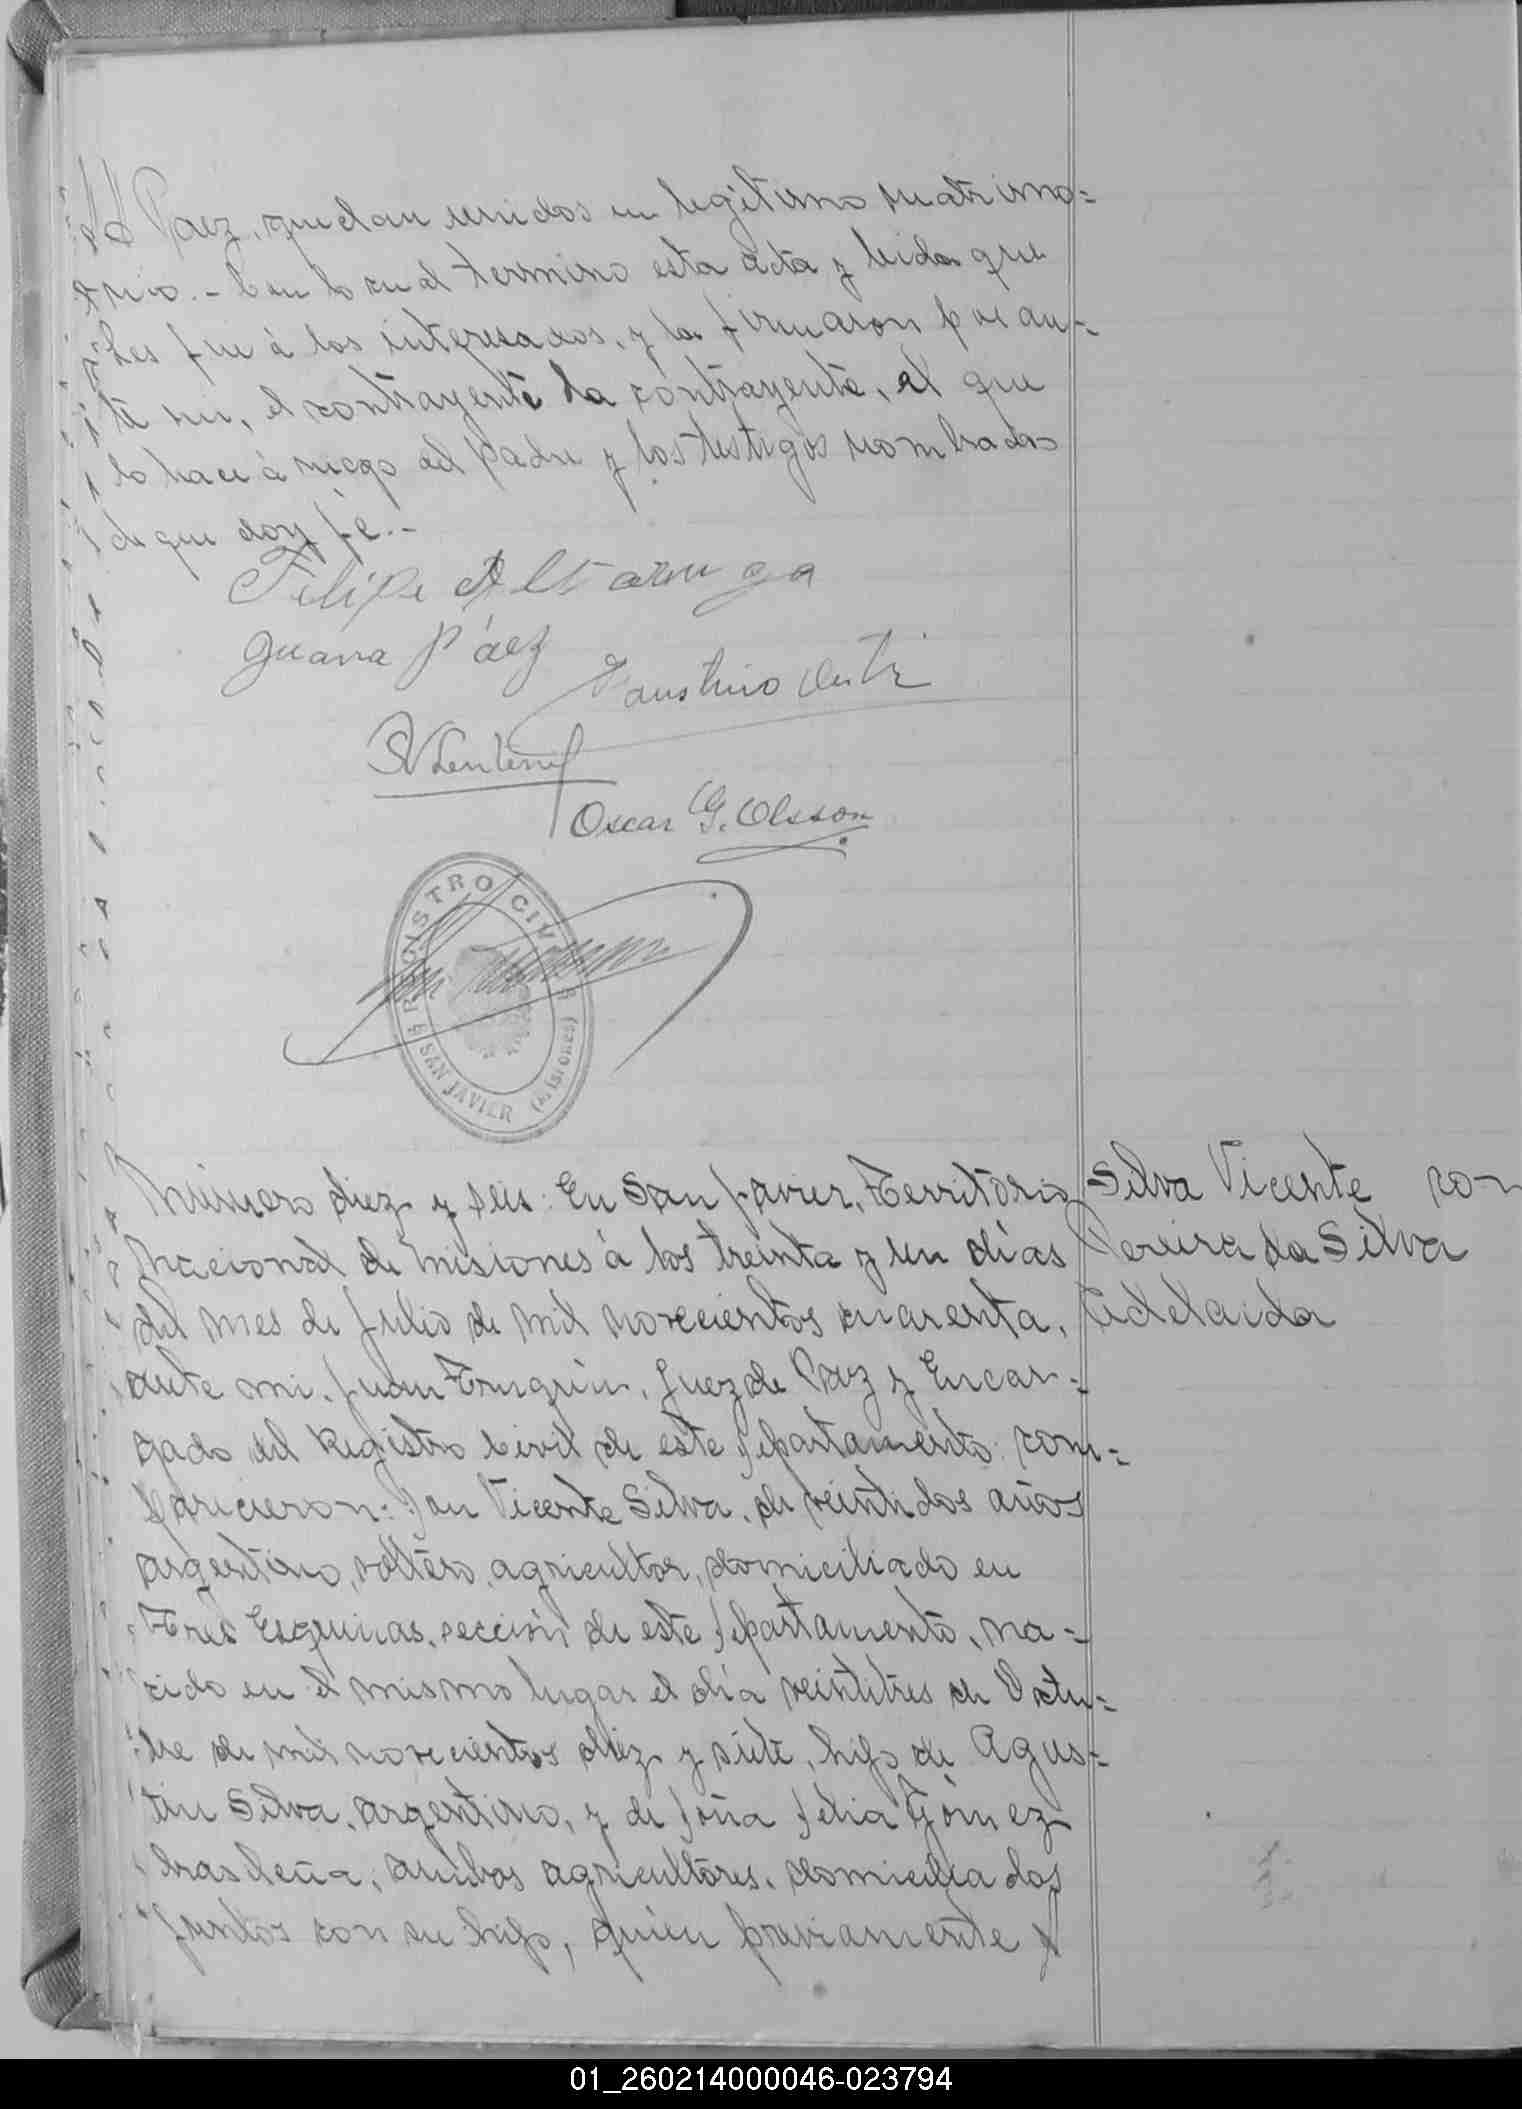 Paez, quedan unidos en legítimo matrimo=
nio.- Con lo cual termino esta acta y leida que
les fue á los interesados, y la firmaron por an-
te mi, el contrayente la contrayente, el que
lo hace á ruego del padre y los testigos nombrados
de que doy fé.-
Felipe
Juana Páez
Faustino
Oscar G. Olsson
REGISTRO CIVIL
SAN JAVIER (Misiones)
Número diez y seis: En San Javier, Territorio
Nacional de Misiones á los treinta y un días
del mes de Julio de mil novecientos cuarenta,
ante mi, Juan, Juez de Paz y Encar-
gado del Registro Civil de este Departamento: com-
parecieron: Don Vicente Silva, de veintidos años
argentino, soltero, agricultor, domiciliado en
Tres Esquinas, sección de este Departamento, na-
cido en el mismo lugar el día veintitres de Octu-
bre de mil novecientos diez y siete, hijo de Agus-
tin Silva, argentino, y de Doña Delia Gómez
brasileña, ambos agricultores, domiciliados
juntos con su hijo, quien previamente
Silva Vicente con
Pereira da Silva
Adelaida
01_260214000046-023794